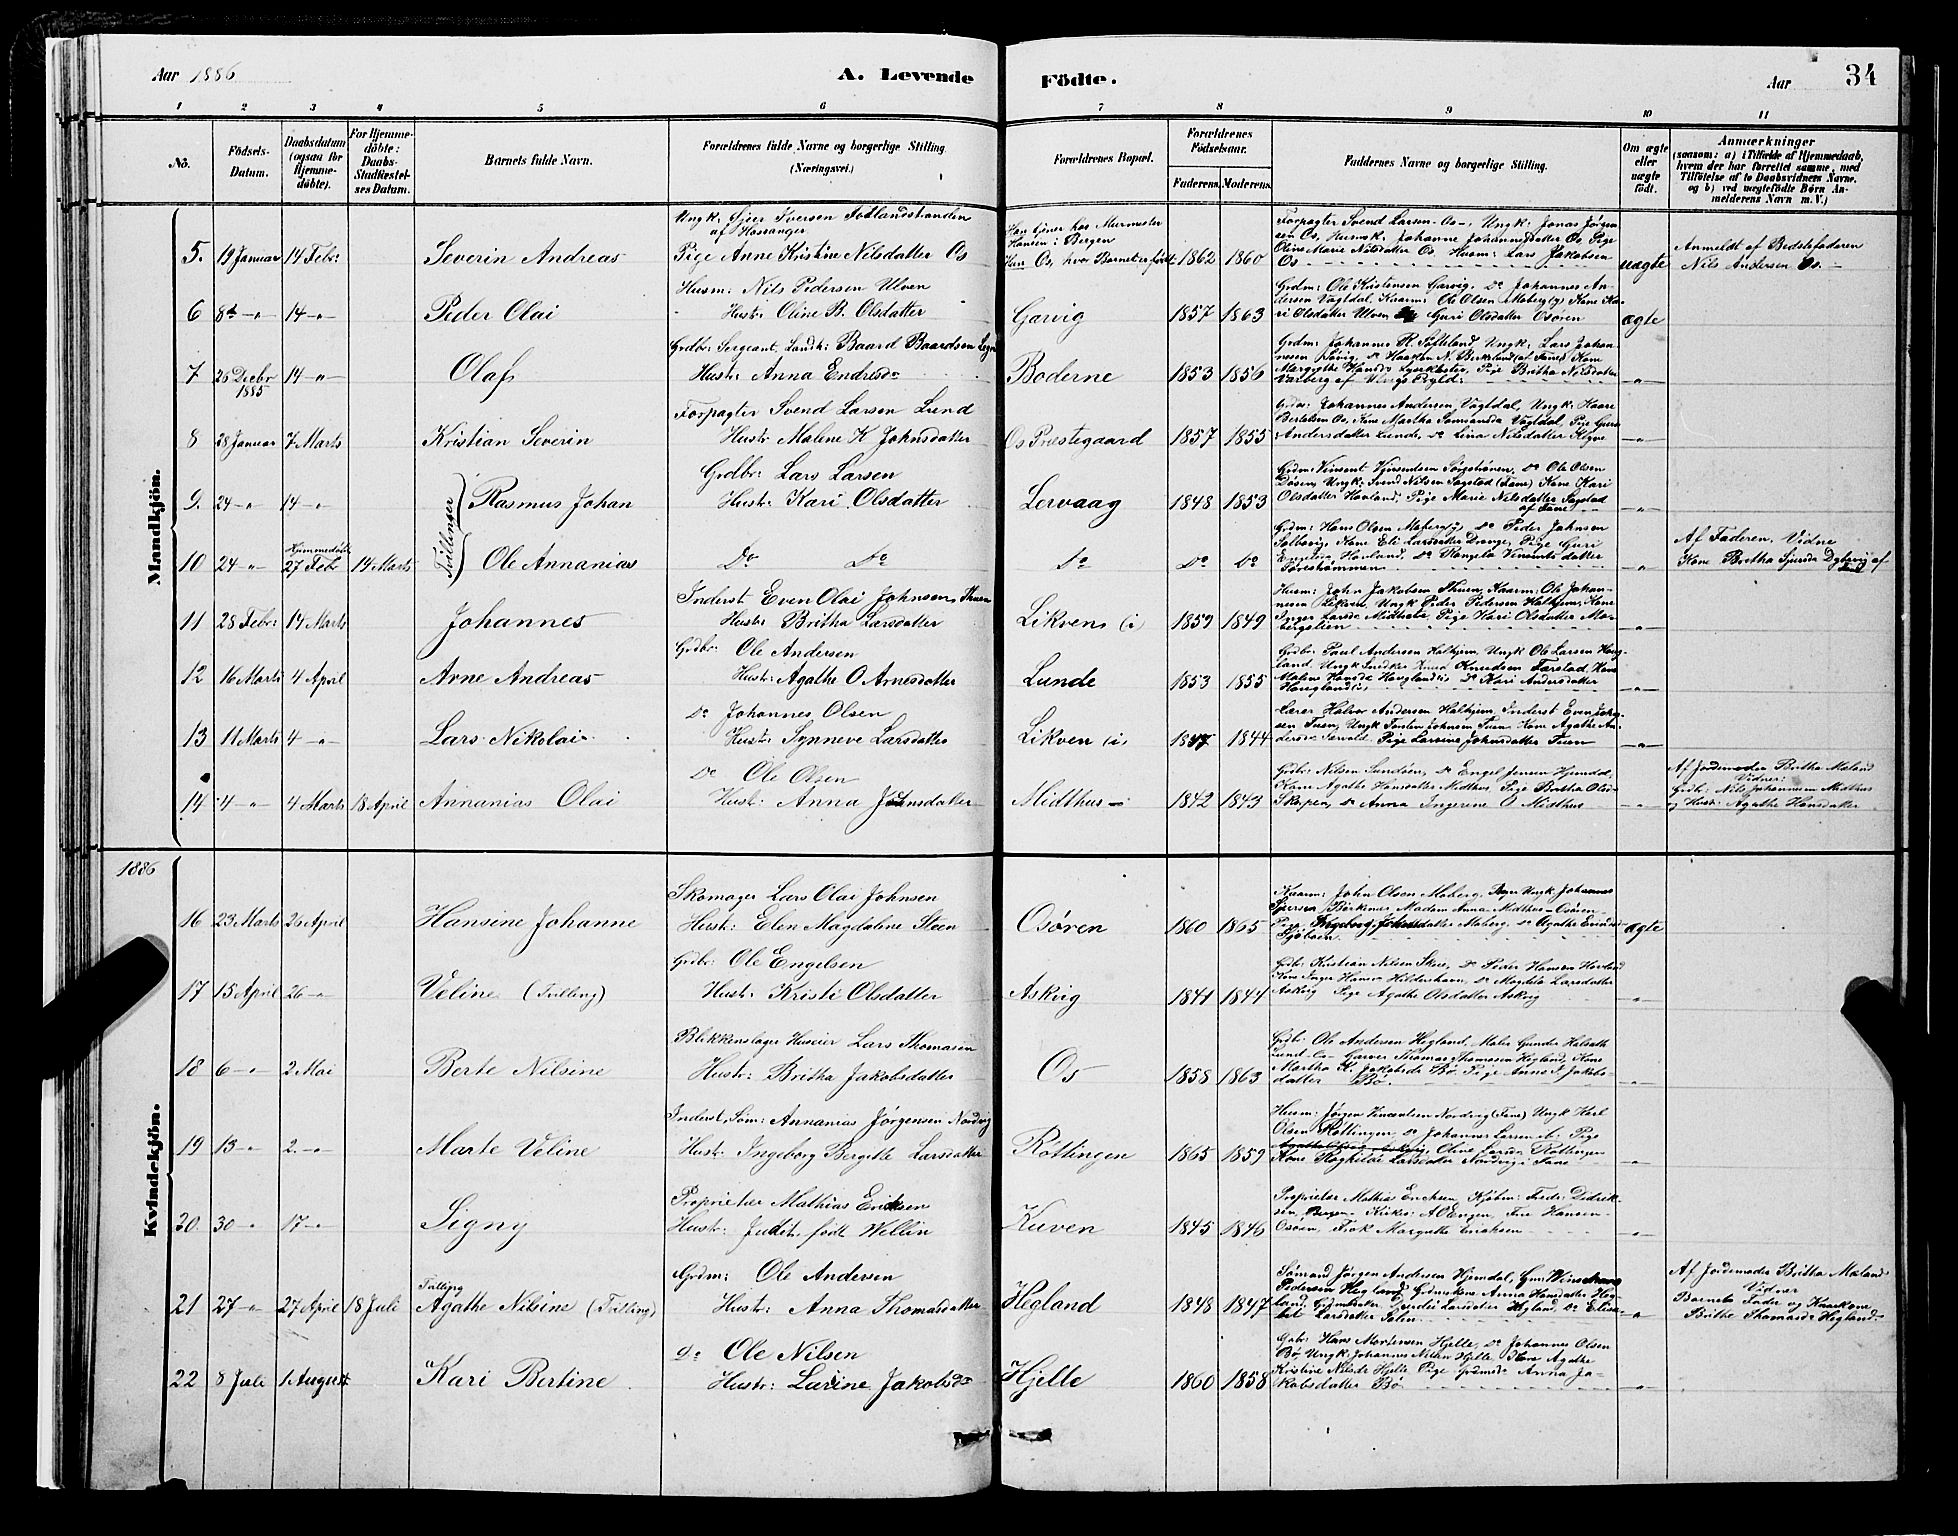 Aar 1886
A. Levende Födte.
Aar 34
1 2 3 4 5 6 7 8 9 10 11
No.
Födsels-Datum.
Daabsdatum (ogsaa for Hjemme-döbte).
For Hjemme-döbte: Daabs-Stadfæstel-ses Datum.
Barnets fulde Navn.
Forældrenes fulde Navne og borgerlige Stilling. (Næringsvei.)
Forældrenes Bopæl.
Forældrenes Födselsaar. Faderens. Moderens.
Faddernes Navne og borgerlige Stilling.
Om ægte eller uægte födt.
Anmærkninger (saasom: a) i Tilfælde af Hjemmedaab, hvem der har forrettet samme, med Tilföielse af to Daabsvidners Navne, og b) ved uægtefödte Börn An-melderens Navn m. V.)
Mandkjön.
5. 19 Januar 14 Febr: Severin Andreas
Ungk: Sjver Iversen
af Hosanger
Pige Anne Kristine Nilsdatter Os
Han tjener hos Murmester
Hansen i Bergen
Hun Os, hvor Barnet er født 1862 1860
Forpagter Svend Larsen Os, Ungk: Jonas Jørgen-
sen Os, Husmk. Johanne Johannesdatter Os, Pige
Oline Marie Nilsdatter Os, Husm: Lars Jakobsen
Os
uægte
Anmeldt af Bedstefaderen
Nils Andersen Os.
6 8de " 14 " Peder Olai
Husm: Nils Pedersen Ulven
Hustr: Oline B. Olsdatter
Garvig 1857 1863
Grdm: Ole Kristensen Garvig, Do Johannes An-
dersen Vagtdal, Kaarm: Ole Olsen Moberg, Kone Ka-
ri Olsdatter Ulven, Guri Olsdatter Osøren
ægte
7 26 Decbr 1885 14 " Olaf
Grdbr: Sergeant, Landh: Baard Baardsen
Hustr: Anna Endresdr
Boderne 1853 1856
Grdm: Johannes R. Søfteland Ungk: Lars Johan-
nesen Søvig, Do Haagen N. Birkeland (af Fane) Kone
Pige Britha Nilsdatter
8 28 Januar 7 Marts Kristian Severin
Forpagter Svend Larsen Lund
Hustr Malene K Johnsdatter
Os Præstegaard 1857 1855
Johannes Andersen Vagtdal, Ungk: Haare
Bertelsen Os, Kone Martha Vagtdal, Pige Guri
Andersdatter Lunde, Do Lina Nilsdatter
9. 24 " 14 " Tvillinger Rasmus Johan
Grdbr: Lars Larsen
Hustr: Kari Olsdatter
Lervaag 1848 1853
Ole Olsen
Døsen, Ungk: Svend Nilsen Søgstad (Fane) Kone Kari
Olsdatter Havland, Pige Marie Nilsdatter Søgstad
af Fane
10 24 " Hjemmedøbt 27 Febr 14 Marts Ole Annanias
Do Do
Do Do Do
Grdm: Hans Olsen Moberg, Do Peder Johnsen
Kone Eli Larsdatter Drange, Pige Guri
Havland, Do Vincentsdatter
Af Faderen, Vidne
Kone Britha
11 28 Febr: 14 Marts Johannes
Inderst Even Olai Johnsen Thuen
Hustr Britha Larsdatter
Likven (i) 1859 1849
Husm: John Jakobsen Thuen, Kaarm: Ole Johan-
nesen Likven, Ungk Peder Pedersen Halhjem, Kone
Inger Larsdr Midthus, Pige Kari Olsdatter Mo-
bergslien
12 16 Marts 4 April Arne Andreas
Grdbr: Ole Andersen
Hustr: Agathe O Arnesdatter
Lunde 1853 1855
Grdbr: Paul Andersen Halhjem, Ungk Ole Larsen Haug-
land, Ungk Knudsen Farstad, Kone
Malene Hansdr Haugland, Do Kari Andersdatter
Haugland
13 11 Marts 4 " Lars Nikolai
Do Johannes Olsen
Hustr: Synneve Larsdatter
Likven (i) 1847 1844
Lærer Halvor Andersen Halhjem, Inderst Even John-
sen Tuen, Ungk Torsten Johnsen Tuen, Kone Agathe An-
dersdr Pige Larsine Johnsdatter Tuen
14 4 " 4 Marts 18 April Annanias Olai
Do Ole Olsen
Hustr: Anna Johnsdatter
Midthus 1842 1843
Grdbr: Nilsen Sundøen, Do Engel Jensen Hjemdal,
Kone Agathe Hansdatter Midthus, Pige Britha Olsdr
Skorpen, Do Anna Ingerine O Midthus
Af Jordemoder Britha Moland
Vidner:
Grdbr: Nils Johannesen Midthus
og Hustr: Agathe Hansdatter
1886
Kvindekjön.
16 23 Marts 26 April Hansine Johanne
Skomager Lars Olai Johnsen
Hustr: Elen Magdalene Steen
Osøren 1860 1865
Kaarm: John Olsen Moberg, Ungk Johannes
Madam Anna Midthus Osøren
Moberg, Do Agathe
ægte
17 15 April 26 " Veline (Tvilling)
Grdbr: Ole Engelsen
Hust: Kristi Olsdatter
Askvig 1841 1844
Grdbr: Kristian Nilsen Skeie, Do Peder Hansen Havland
Kone Inger Hansdr Hildershavn, Do Magdela Larsdatter
Askvig Pige Agathe Olsdatter Askvig
18 6 " 2 Mai Berte Nilsine
Blikkenslager Huseier Lars Thomasen
Hustr: Britha Jakobsdatter
Os 1858 1863
Grdbr: Ole Andersen Hegland, Maler Gunder
Garver Thomas Thomasen Hegland, Kone
Martha K. Jakobsdr Bø, Pige Anna I. Jakobs-
datter Bø
19 13 " 2. " Marte Veline
Inderst, Søm: Annanias Jørgensen Nordvig
Hustr: Ingeborg Bergitte Larsdatter
Røttingen 1865 1859
Husm: Jørgen Vincentsen Nordvig (Fane) Ungk Karl
Olsen Røttingen, Do Johannes Larsen ib. Pige
Oline Larsdr Røttingen
Kone Raghilde Larsdatter Nordvig i Fane
20. 30 " 17 " Signy
Proprietær Mathias Eriksen
Hustr: Judit, født Wellin
Kuven 1845 1846
Proprietær Mathias Erichsen, Kjøbm: Fredr: Didrik-
sen, Bergen, Kirkes: A O Engen, Frue Hansen
Osøren, Frøk Margrethe Erichsen
21 27 " 27 April 18 Juli Tvilling Agathe Nilsine (Tvilling)
Grdm: Ole Andersen
Hustr: Anna Thomasdatter
Hegland 1848 1847
Sømand Jørgen Andersen Hjemdal,
Pedersen Hegland Anna Hansdatter Heg-
land, Larsdatter Hegland, Do Elisa-
bet Larsdatter Solen
Af Jordemoder Britha Moland
Vidner
Barnets Fader og Kaarkone
Brithe Thomasdr Hegland
22 8 Juli 1 August Kari Bertine
Do Ole Nilsen
Hustr: Larine Jakobsdr
Hjelle 1860 1858
Grdbr: Hans Mortensen Hjelle, Do Johannes Olsen
Bø, Ungk: Johannes Nilsen Hjelle, Kone Agathe
Kristine Nilsdr Hjelle, Pige Anna Ja-
kobsdatter Bø